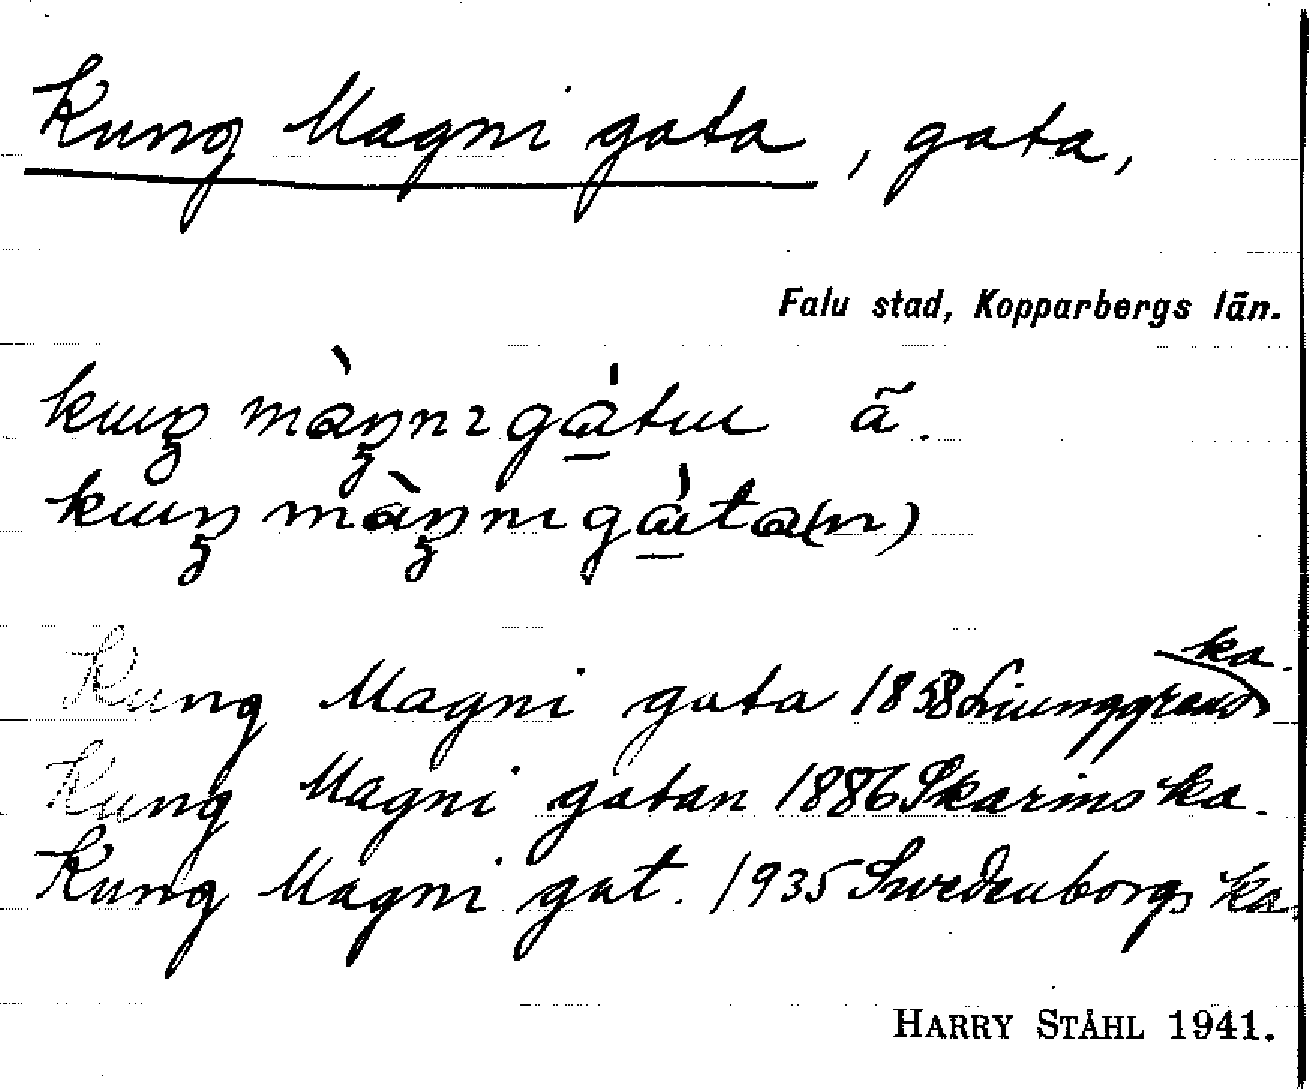 Kung Magni gata, gata,
Falu stad, Kopparbergs län.
ã.
Kung Magni gata 1858 Liunggrens ka.
Kung Magni gatan 1886 Skarins ka.
Kung Magni gat. 1935 Swedenborgs ka.
HARRY STÅHL 1941.